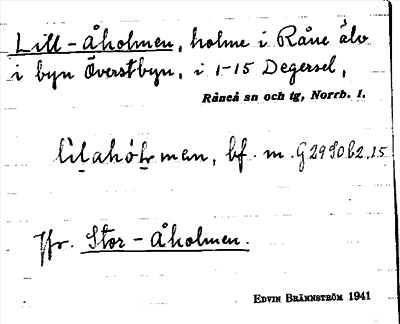 Lill-Åholmen, holme i Råne älv
i byn Överstbyn, i 1-15 Degersel,
Råneå sn och tg, Norrb. l.
bf. m.
Jfr. Stor-Åholmen.
EDVIN BRÄNNSTRÖM 1941